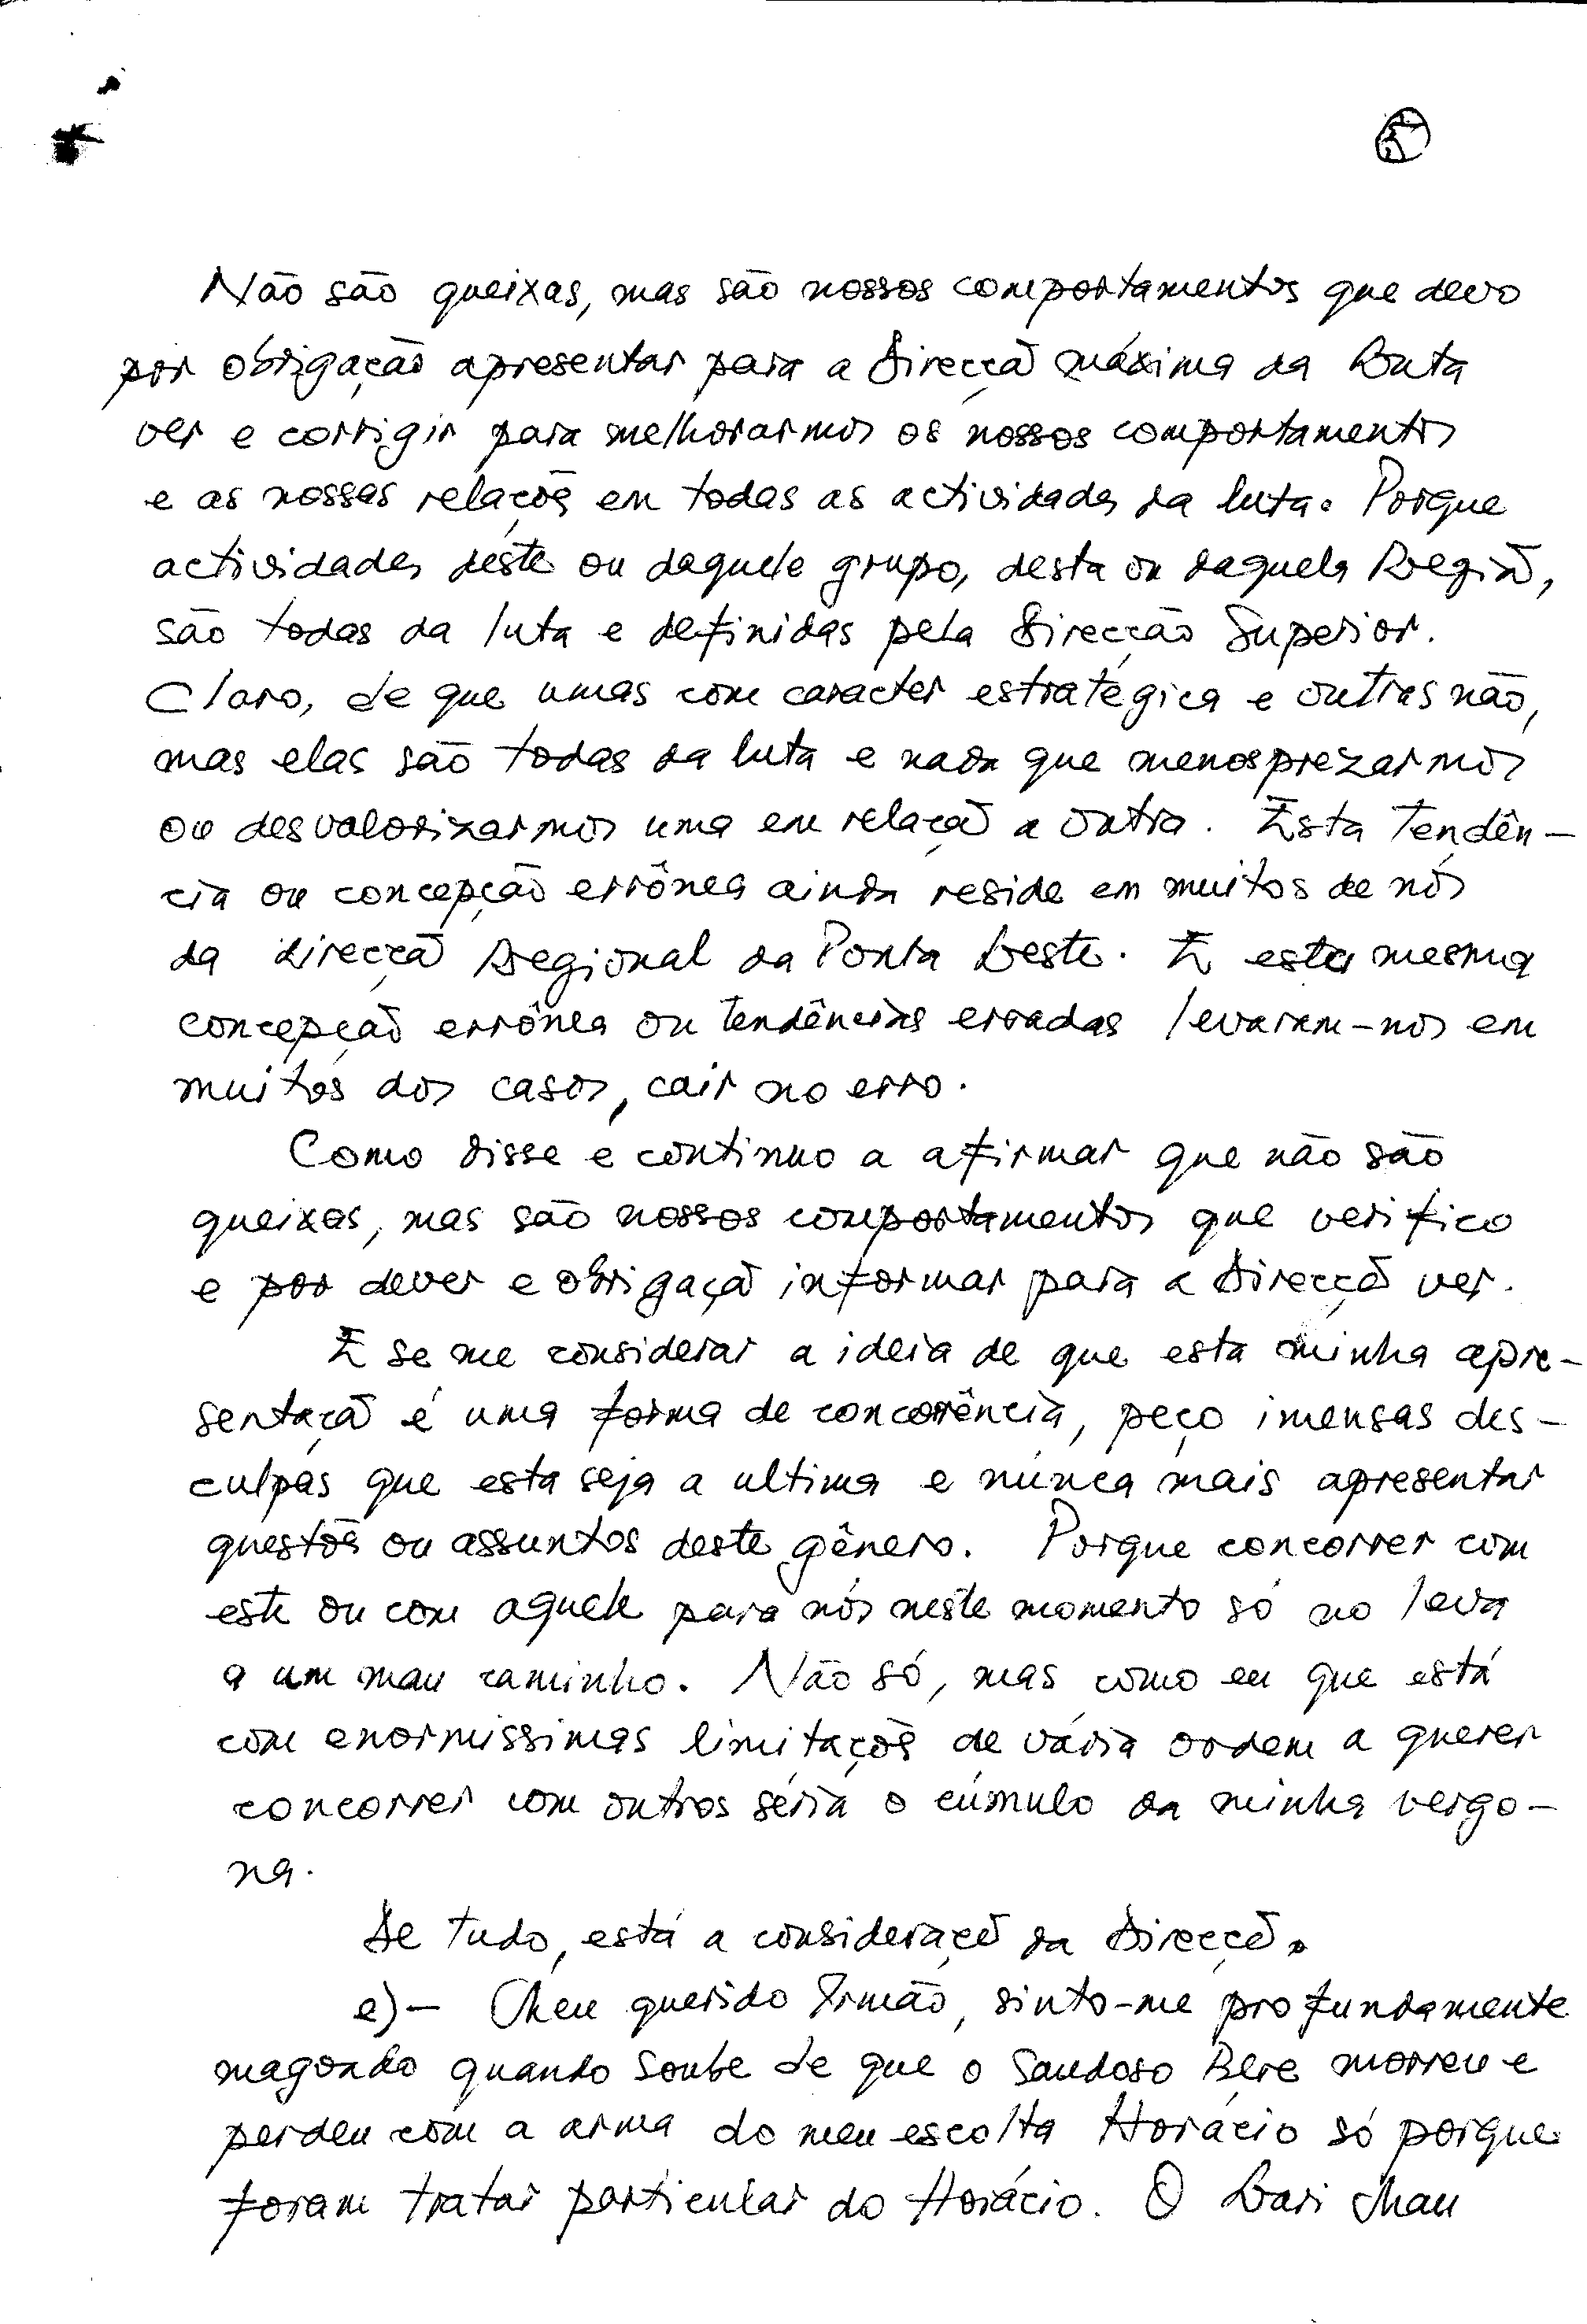 Não são queixas, mas são nossos comportamentos que devo
por obrigação apresentar para a Direcção máxima da Luta
ver e corrigir para melhorarmos os nossos comportamentos
e as nossas relações em todas as actividades da luta. Porque
actividades deste ou daquele grupo, desta ou daquela Região,
são todas da luta e definidas pela Direcção Superior.
Claro, de que umas com caracter estratégica e outras não,
mas elas são todas da luta e nada que menosprezarmos
ou desvalorizarmos uma em relação a outra. Esta Tendên-
cia ou concepção errônea ainda reside em muitos de nós
da direcção Regional da Ponta Leste. E esta mesma
concepção errônea ou Tendências erradas levaram-nos em
muitos dos casos, cair no erro.
Como disse e continuo a afirmar que não são
queixas, mas são nossos comportamentos que verifico
e por dever e obrigação informar para a Direcção ver.
E se me considerar a ideia de que esta minha apre-
sentação é uma forma de concorrência, peço imensas des-
culpas que esta seja a ultima e nunca mais apresentar
questões ou assuntos deste gênero. Porque concorrer com
este ou com aquele para nós neste momento só no leva
a um mau caminho. Não só, mas como eu que está
com enormissimas limitações de vária ordem a querer
concorrer com outros séria o cúmulo da minha vergo-
na.
De tudo, está a consideração da Direcção.
e)- Meu querido Irmão, sinto-me profundamente
magoado quando soube de que o saudoso Bere morreu e
perdeu com a arma do meu escolta Horácio só porque
foram tratar particular do Horácio. O Lari Mau